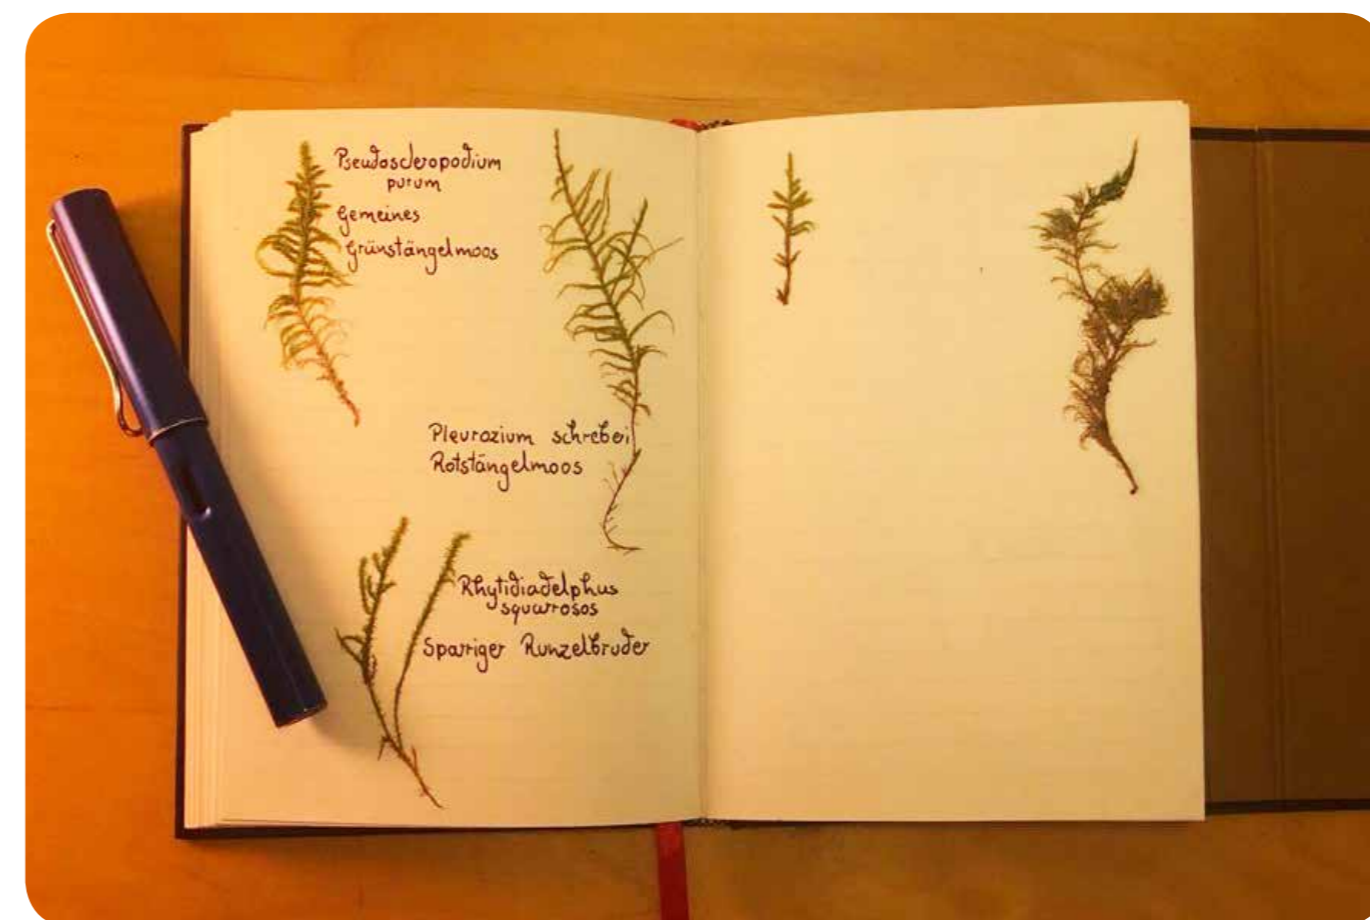 Pseudoscleropodium
purum
Gemeines
Grünstängelmoos
Pleurozium schrebei
Rotstängelmoos
Rhytidiadelphus
squarrosos
Sparriger Runzelbruder